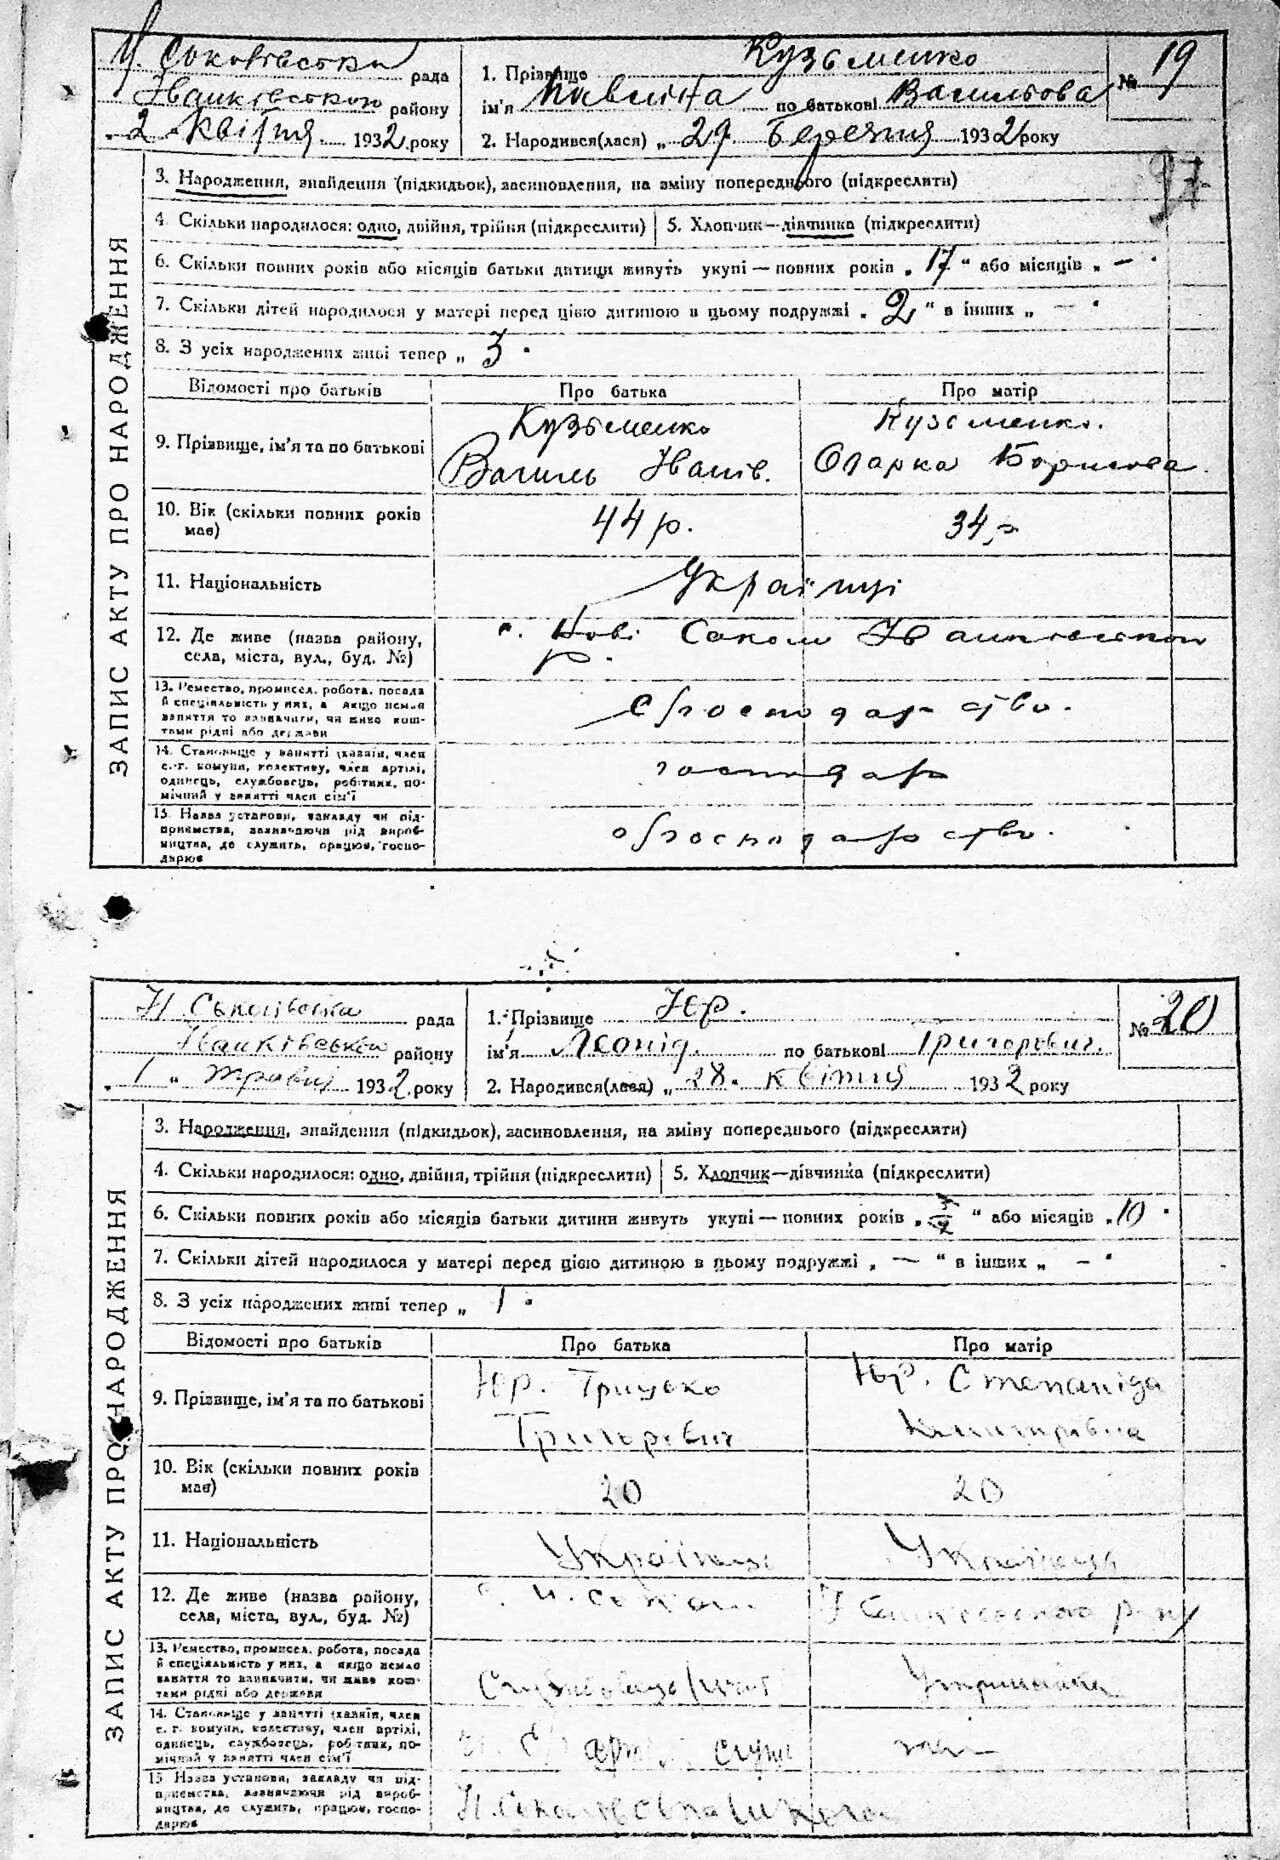 Н. Соколівська рада
Іванківського району
„ 2 „ Квітня 1932 року
1. Прізвище Кузьменко
ім'я Павлина по батькові Васильова
2. Народився(лася) „ 29 Березня 1932 року
№ 19
97
ЗАПИС АКТУ ПРО НАРОДЖЕННЯ
3. Народження, знайдення (підкидьок), засиновлення, на зміну попереднього (підкреслити)
4. Скільки народилося: одно, двійня, трійня (підкреслити) 5. Хлопчик—дівчинка (підкреслити)
6. Скільки повних років або місяців батьки дитини живуть укупі — повних років „ 17 “ або місяців „ — “
7. Скільки дітей народилося у матері перед цією дитиною в цьому подружжі „ 2 “ в інших „ — “
8. З усіх народжених живі тепер „ 3 “
Відомості про батьків Про батька Про матір
9. Прізвище, ім'я та по батькові Кузьменко Василь Іванів. Кузьменко. Одарка Борисова
10. Вік (скільки повних років має) 44 р. 34 р
11. Національність Українці
12. Де живе (назва району, села, міста, вул., буд. №) с. Нові Соколи Іванківського р.
13. Ремество, промисел. робота, посада й спеціяльність у них, а якщо немає заняття то зазначити, чи живе коштами рідні або держави с/господарство.
14. Становище у занятті (хазяїн, член с.-г. комуни, колективу, член артілі, одинець, службовець, робітник, помічний у занятті член сім'ї господар
15. Назва установи, закладу чи підприємства, зазначаючи рід виробництва, де служить, працює, господарює с/господарство.
Н. Соколівська рада
Іванківської району
„ 1 „ травня 1932 року
1. Прізвище Юр.
ім'я Леонід. по батькові Григорович.
2. Народився(лася) „ 28. квітня 1932 року
№ 20
ЗАПИС АКТУ ПРО НАРОДЖЕННЯ
3. Народження, знайдення (підкидьок), засиновлення, на зміну попереднього (підкреслити)
4. Скільки народилося: одно, двійня, трійня (підкреслити) 5. Хлопчик—дівчинка (підкреслити)
6. Скільки повних років або місяців батьки дитини живуть укупі — повних років „ “ або місяців „ 10 “
7. Скільки дітей народилося у матері перед цією дитиною в цьому подружжі „ — “ в інших „ — “
8. З усіх народжених живі тепер „ 1 “
Відомості про батьків Про батька Про матір
9. Прізвище, ім'я та по батькові Юр. Грицько Григорович Юр. Степаніда Дмитрівна
10. Вік (скільки повних років має) 20 20
11. Національність Українець Українка
12. Де живе (назва району, села, міста, вул., буд. №) с. Н. Соколи Іванківського р-ну
13. Ремество, промисел. робота, посада й спеціяльність у них, а якщо немає заняття то зазначити, чи живе коштами рідні або держави Службовець
14. Становище у занятті (хазяїн, член с. г. комуни, колективу, член артілі, одинець, службовець, робітник, помічний у занятті член сім'ї
15. Назва установи, закладу чи підприємства, зазначаючи рід виробництва, де служить, працює, господарює Н. Соколівська школа